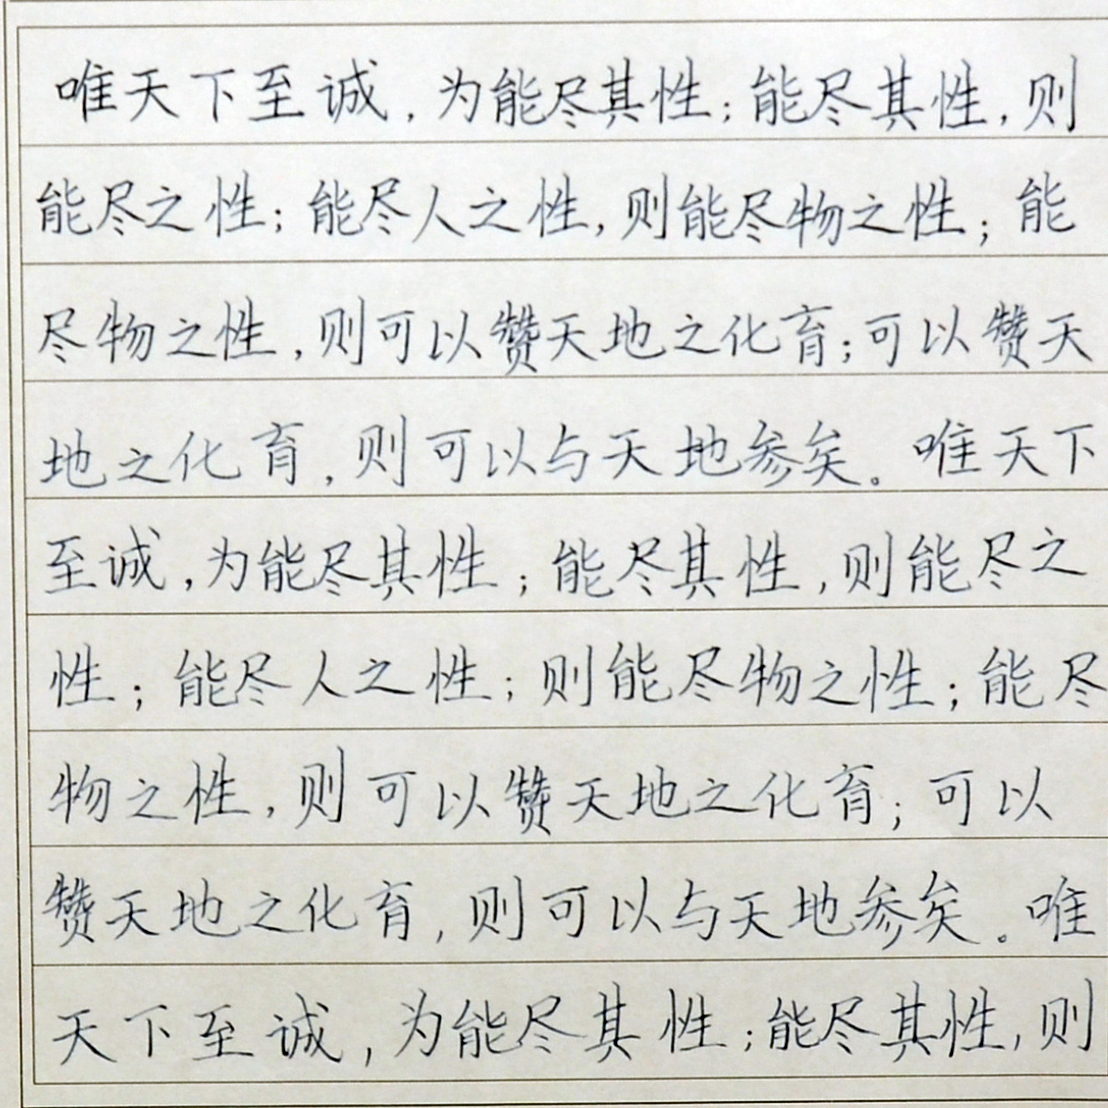 唯天下至诚,为能尽其性;能尽其性,则
能尽之性;能尽人之性,则能尽物之性;能
尽物之性,则可以赞天地之化育;可以赞天
地之化育,则可以与天地参矣。唯天下
至诚,为能尽其性;能尽其性,则能尽之
性;能尽人之性;则能尽物之性;能尽
物之性,则可以赞天地之化育;可以
赞天地之化育,则可以与天地参矣。唯
天下至诚,为能尽其性;能尽其性,则